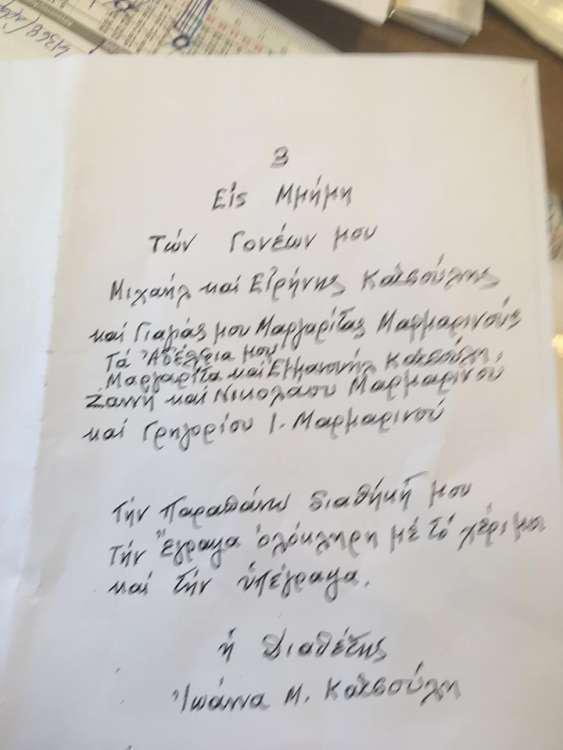 3
Εἰς Μμήμη
Τών Γονέων μου
Μιχαήλ και Εἰρήνης Κατσούλης
και Γιαγιάς μου Μαργαρίτας Μαρμαρινούς
Τά Ἀδέλφια μου
Μαργαρίτα και Εμμανουήλ Κατσούλη,
Ζαννή και Νικολάου Μαρμαρινού
και Γρηγορίου Ι. Μαρμαρινού
Τήν Παραπάνω διαθήκη μου
Τήν Ἔγραψα ὁλόκληρη μέ τό χέρι μου
και Τήν ὑπέγραψα.
ἡ Διαθέτης
Ἰωάννα Μ. Κατσούλη